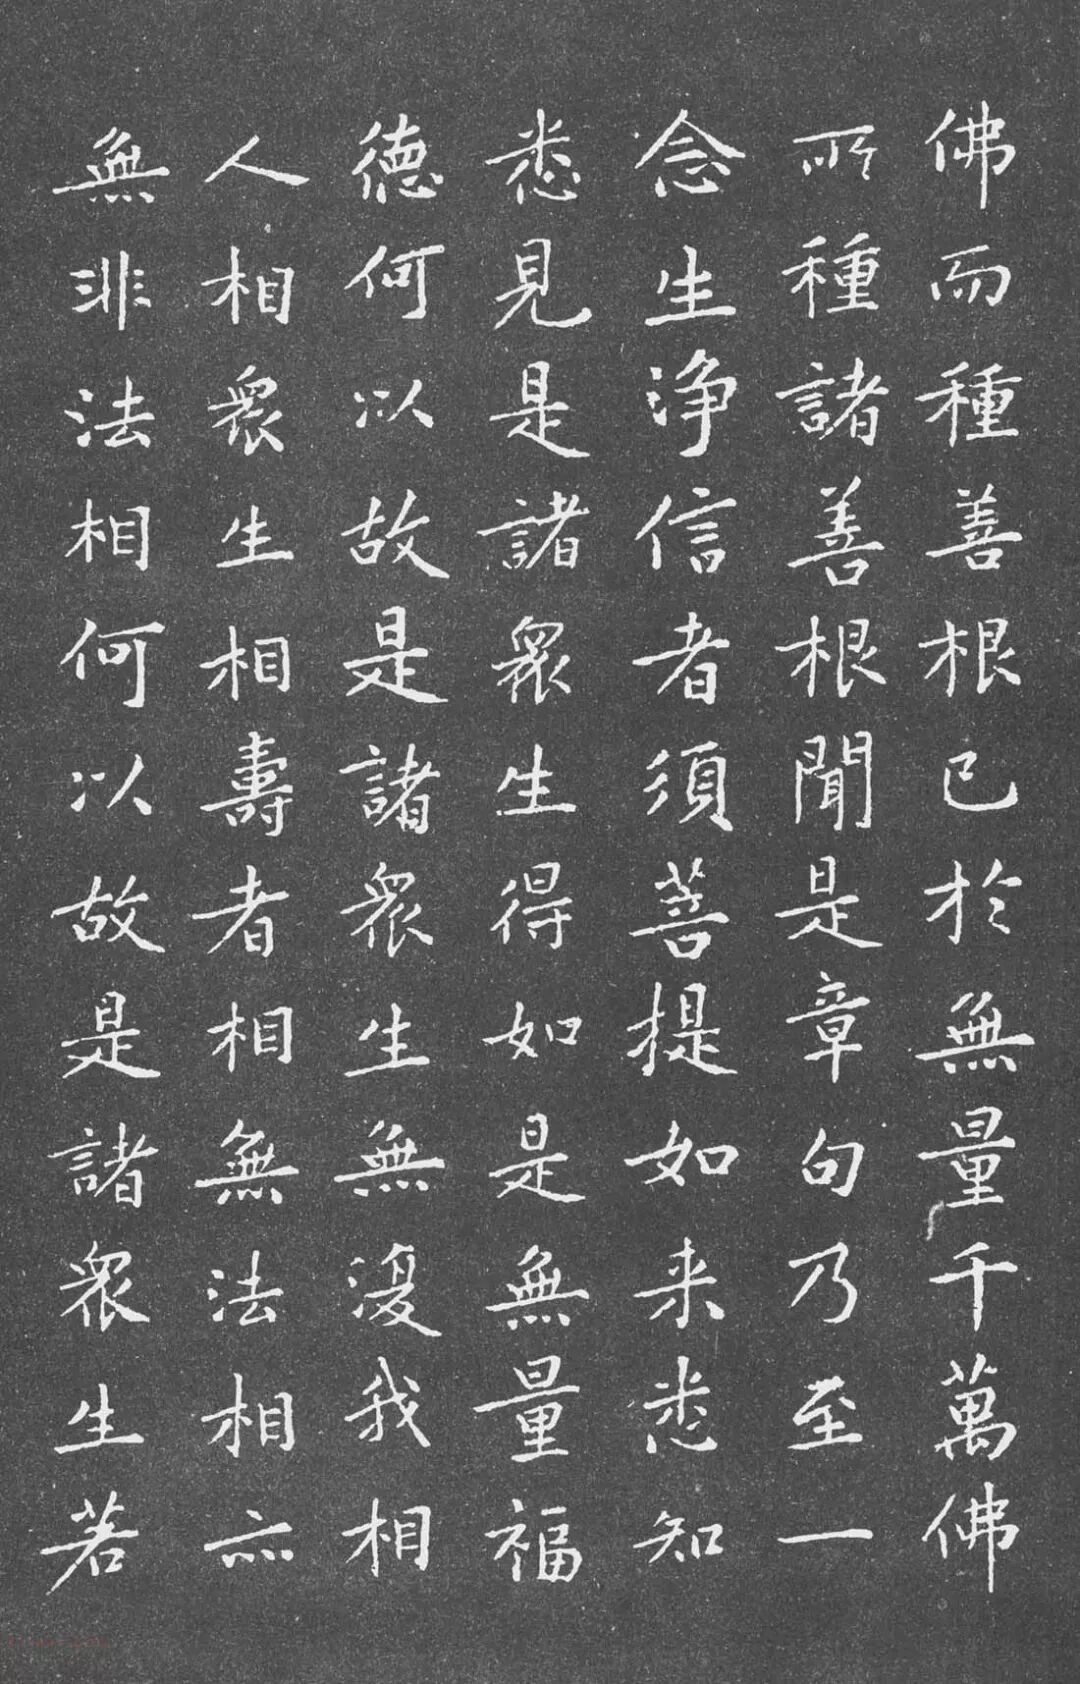 佛而種善根已於無量千萬佛
所種諸善根聞是章句乃至一
念生淨信者須菩提如来悉知
悉見是諸眾生得如是無量福
德何以故是諸眾生無復我相
人相眾生相壽者相無法相亦
無非法相何以故是諸眾生若